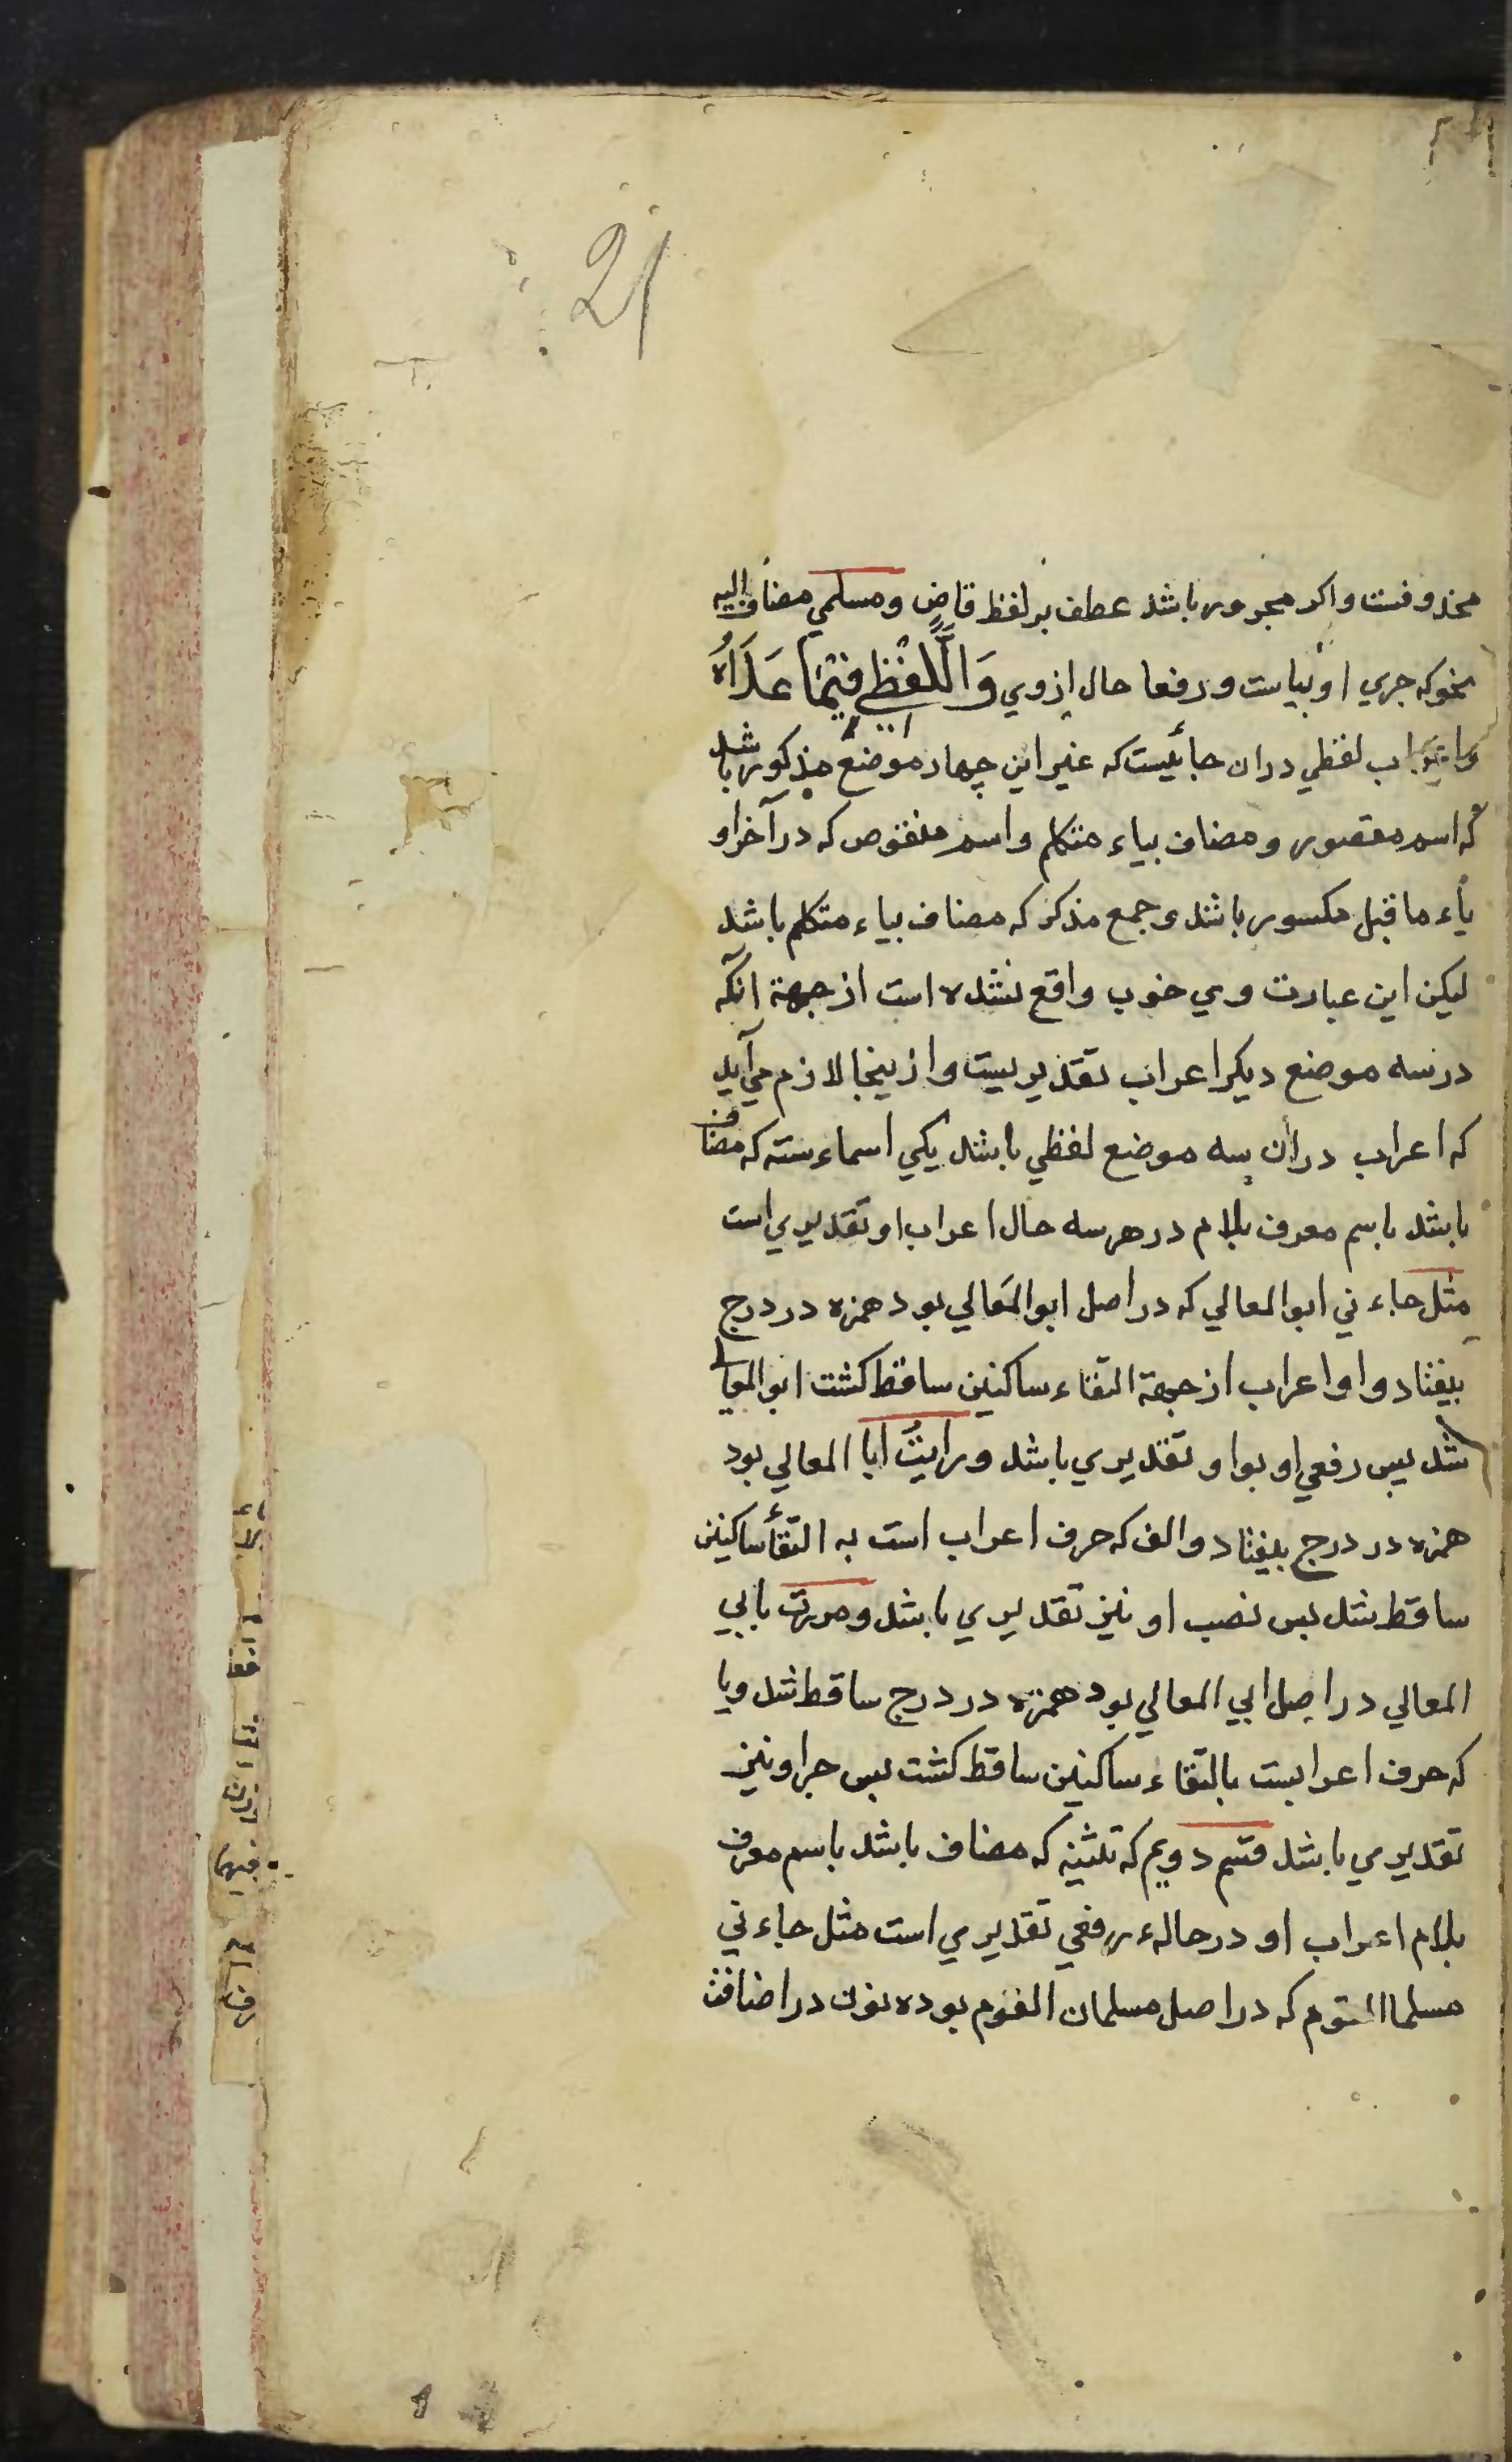 21
محذوفست واکر مجرور باشد عطف بر لفظ قاضٍ ومسلمي مضاف الیه
نحو که جري او بیاست ورفعا حال ازوي وَاللَّفْظِيُّ فِيْمَا عَدَاهُ
واعراب لفظي دران جائیست که غیر این چهار موضع مذکور باشد
که اسم مقصور ومضاف بیاء متکلم واسم منقوص که در آخر او
یاء ماقبل مکسور باشد وجمع مذکر که مضاف بیاء متکلم باشد
لیکن این عبارت وي خوب واقع نشده است از جهة آنکه
در سه موضع دیکر اعراب تقدیریست وازینجا لازم مي آید
که اعراب در آن سه موضع لفظي باشد یکي اسماء سته که مضاف
باشد باسم معرف بلام در هر سه حال اعراب او تقدیري است
مثل جاءني ابوالمعالي که در اصل ابوالمَعالي بود همزه در درج
بیفتاد واو اعراب از جهة التقاء ساکنین ساقط کشت ابوالمعالي
شد پس رفعي او بواو تقدیري باشد ورایتُ ابا المعالي بود
همزه در درج بیفتاد والف که حرف اعراب است به التقأ ساکنین
ساقط شد پس نصب او نیز تقدیري باشد ومررت بابي
المعالي در اصل ابي المعالي بود همزه در درج ساقط شد ویا
که حرف اعرابست بالتقاء ساکنین ساقط کشت پس جر او نیز
تقدیري باشد قسم دویم که تثنیه که مضاف باشد باسم معرف
بلام اعراب او در حالهء رفعي تقدیري است مثل جاءني
مسلما القوم که در اصل مسلمان القوم بوده نون در اضافت